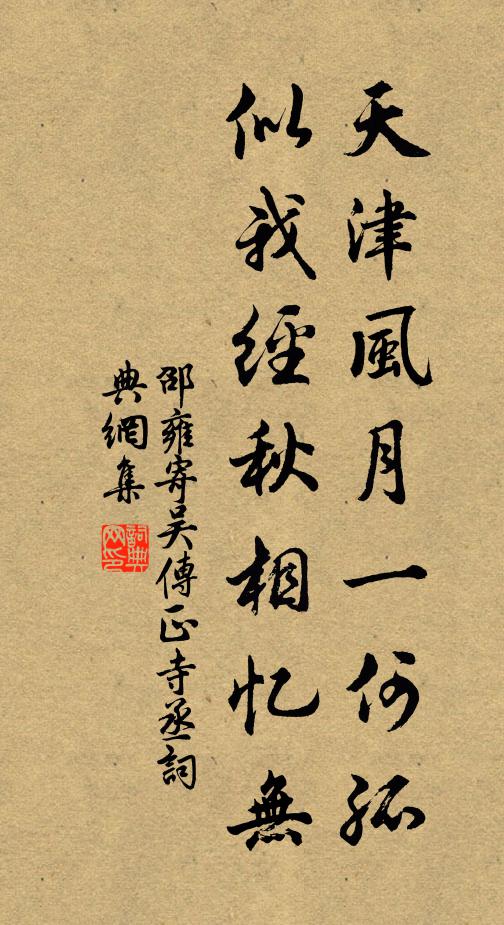 天津風月一何孤
似我經秋相忆無
邵雍寄吴傅正寺丞詞
典網集
詞典网印